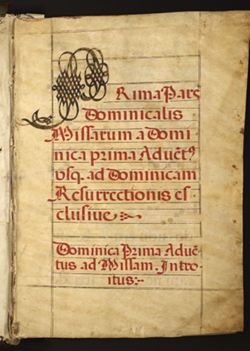 PRima Pars
Dominicalis
Missarum a Domi
nica prima Aduẽt⁹
vsq. ad Dominicam
Resurrectionis es
clusiue
Dominica Prima Aduẽ
tus ad Missam. Intro
itus: